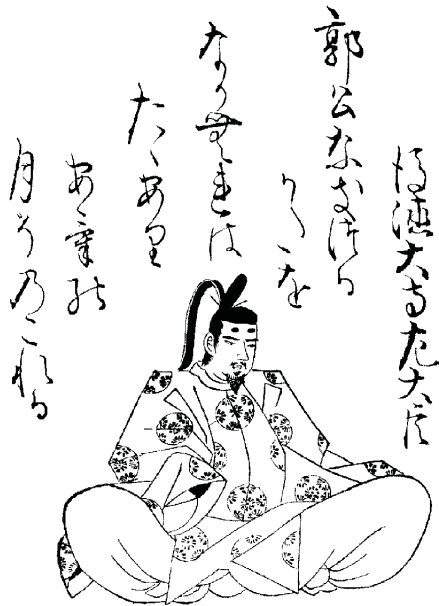 後徳大寺左大臣
郭公なきつる
かたを
なかむれは
たゝあり
あけの
月そのこれる